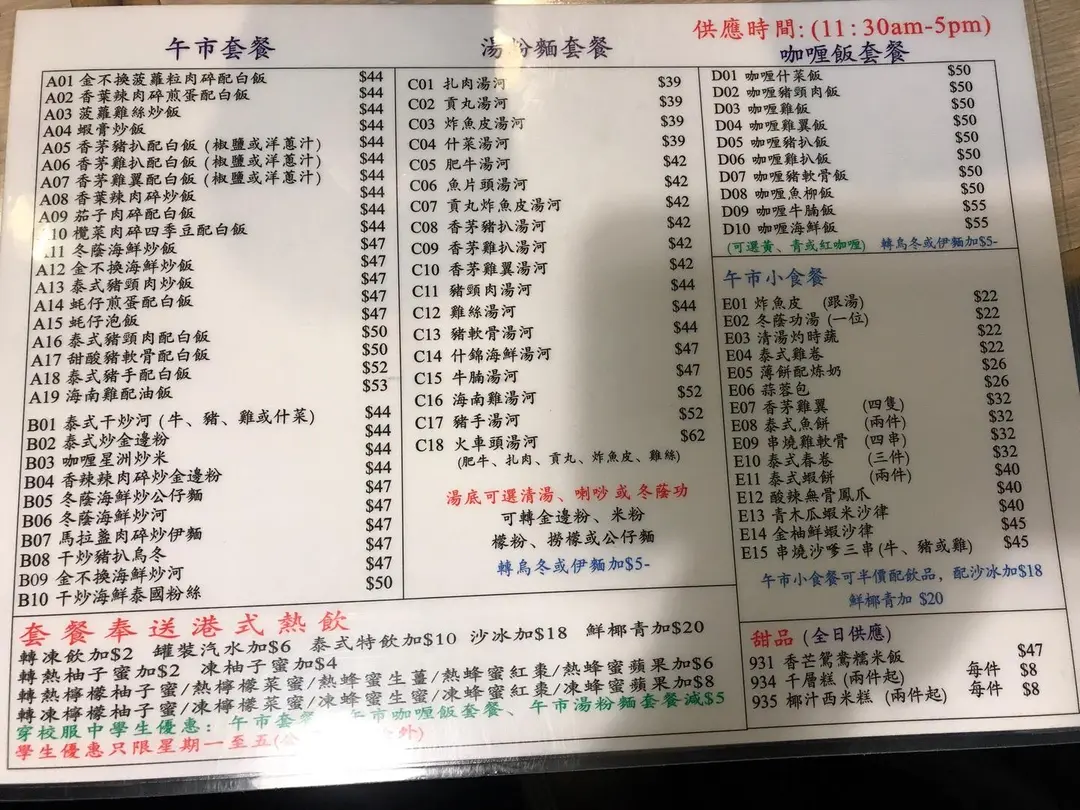 供應時間:(11:30am-5pm)
午市套餐
A01 金不換菠蘿粒肉碎配白飯 $44
A02 香葉辣肉碎煎蛋配白飯 $44
A03 菠蘿雞絲炒飯 $44
A04 蝦膏炒飯 $44
A05 香茅豬扒配白飯 (椒鹽或洋蔥汁) $44
A06 香茅雞扒配白飯 (椒鹽或洋蔥汁) $44
A07 香茅雞翼配白飯 (椒鹽或洋蔥汁) $44
A08 香葉辣肉碎炒飯 $44
A09 茄子肉碎配白飯 $44
A10 欖菜肉碎四季豆配白飯 $44
A11 冬蔭海鮮炒飯 $47
A12 金不換海鮮炒飯 $47
A13 泰式豬頸肉炒飯 $47
A14 蚝仔煎蛋配白飯 $47
A15 蚝仔泡飯 $47
A16 泰式豬頸肉配白飯 $50
A17 甜酸豬軟骨配白飯 $50
A18 泰式豬手配白飯 $52
A19 海南雞配油飯 $53
B01 泰式干炒河 (牛、豬、雞或什菜) $44
B02 泰式炒金邊粉 $44
B03 咖喱星洲炒米 $44
B04 香辣辣肉碎炒金邊粉 $44
B05 冬蔭海鮮炒公仔麵 $47
B06 冬蔭海鮮炒河 $47
B07 馬拉盞肉碎炒伊麵 $47
B08 干炒豬扒烏冬 $47
B09 金不換海鮮炒河 $47
B10 干炒海鮮泰國粉絲 $50
湯粉麵套餐
C01 扎肉湯河 $39
C02 貢丸湯河 $39
C03 炸魚皮湯河 $39
C04 什菜湯河 $39
C05 肥牛湯河 $42
C06 魚片頭湯河 $42
C07 貢丸炸魚皮湯河 $42
C08 香茅豬扒湯河 $42
C09 香茅雞扒湯河 $42
C10 香茅雞翼湯河 $42
C11 豬頸肉湯河 $44
C12 雞絲湯河 $44
C13 豬軟骨湯河 $44
C14 什錦海鮮湯河 $47
C15 牛腩湯河 $47
C16 海南雞湯河 $52
C17 豬手湯河 $52
C18 火車頭湯河 $62
(肥牛、扎肉、貢丸、炸魚皮、雞絲)
湯底可選清湯、喇吵 或 冬蔭功
可轉金邊粉、米粉
檬粉、撈檬或公仔麵
轉烏冬或伊麵加$5-
咖喱飯套餐
D01 咖喱什菜飯 $50
D02 咖喱豬頸肉飯 $50
D03 咖喱雞飯 $50
D04 咖喱雞翼飯 $50
D05 咖喱豬扒飯 $50
D06 咖喱雞扒飯 $50
D07 咖喱豬軟骨飯 $50
D08 咖喱魚柳飯 $50
D09 咖喱牛腩飯 $55
D10 咖喱海鮮飯 $55
(可選黃、青或紅咖喱) 轉烏冬或伊麵加$5-
午市小食餐
E01 炸魚皮 (跟湯) $22
E02 冬蔭功湯 (一位) $22
E03 清湯灼時蔬 $22
E04 泰式雞卷 $22
E05 薄餅配煉奶 $26
E06 蒜蓉包 $26
E07 香茅雞翼 (四隻) $32
E08 泰式魚餅 (兩件) $32
E09 串燒雞軟骨 (四串) $32
E10 泰式春卷 (三件) $32
E11 泰式蝦餅 (兩件) $40
E12 酸辣無骨鳳爪 $40
E13 青木瓜蝦米沙律 $40
E14 金柚鮮蝦沙律 $45
E15 串燒沙嗲三串 (牛、豬或雞) $45
午市小食餐可半價配飲品，配沙冰加$18
鮮椰青加 $20
套餐奉送港式熱飲
轉凍飲加$2 罐裝汽水加$6 泰式特飲加$10 沙冰加$18 鮮椰青加$20
轉熱柚子蜜加$2 凍柚子蜜加$4
轉熱檸檬柚子蜜/熱檸檬菜蜜/熱蜂蜜生薑/熱蜂蜜紅棗/熱蜂蜜蘋果加$6
轉凍檸檬柚子蜜/凍檸檬菜蜜/凍蜂蜜生蜜/凍蜂蜜紅棗/凍蜂蜜蘋果加$8
穿校服中學生優惠: 午市套餐 午市咖喱飯套餐、午市湯粉麵套餐減$5
學生優惠只限星期一至五( 外)
甜品 (全日供應)
931 香芒鴛鴦糯米飯 $47
934 千層糕 (兩件起) 每件 $8
935 椰汁西米糕 (兩件起) 每件 $8